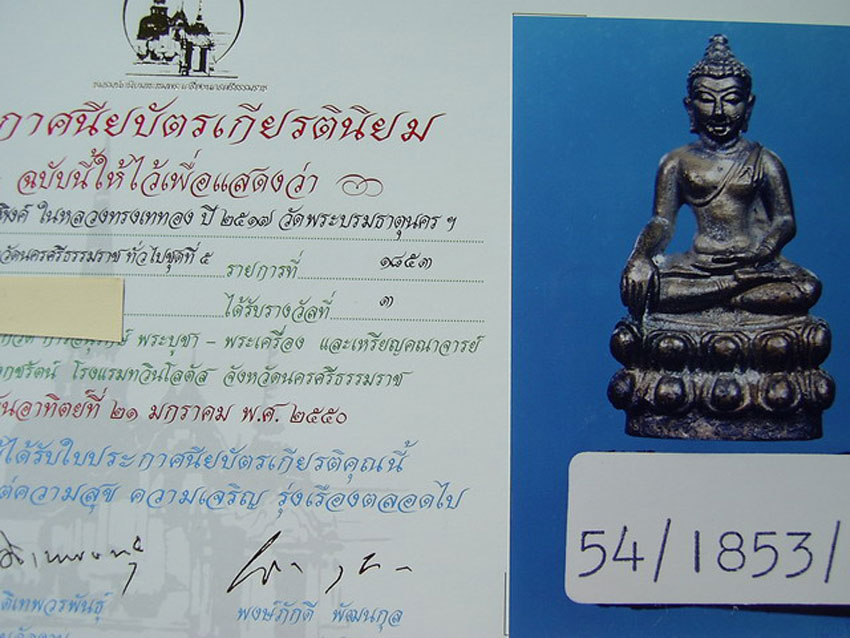 กาศนียบัตรเกียรตินิยม
ฉบับนี้ให้ไว้เพื่อแสดงว่า
พิงค์ ในหลวงทรงเททอง ปี ๒๕๑๗ วัดพระบรมธาตุนคร ฯ
วัดนครศรีธรรมราช ทั่วไปชุดที่ ๕ รายการที่ ๑๘๕๓
ได้รับรางวัลที่ ๓
พระบูชา - พระเครื่อง และเหรียญคณาจารย์
โรงแรมทวินโลตัส จังหวัดนครศรีธรรมราช
ันอาทิตย์ที่ ๒๑ มกราคม พ.ศ. ๒๕๕๐
ได้รับใบประกาศนียบัตรเกียรติคุณนี้
ต่ความสุข ความเจริญ รุ่งเรืองตลอดไป
ดิเทพวรพันธุ์ พงษ์ภักดี พัฒนกุล
54/1853/